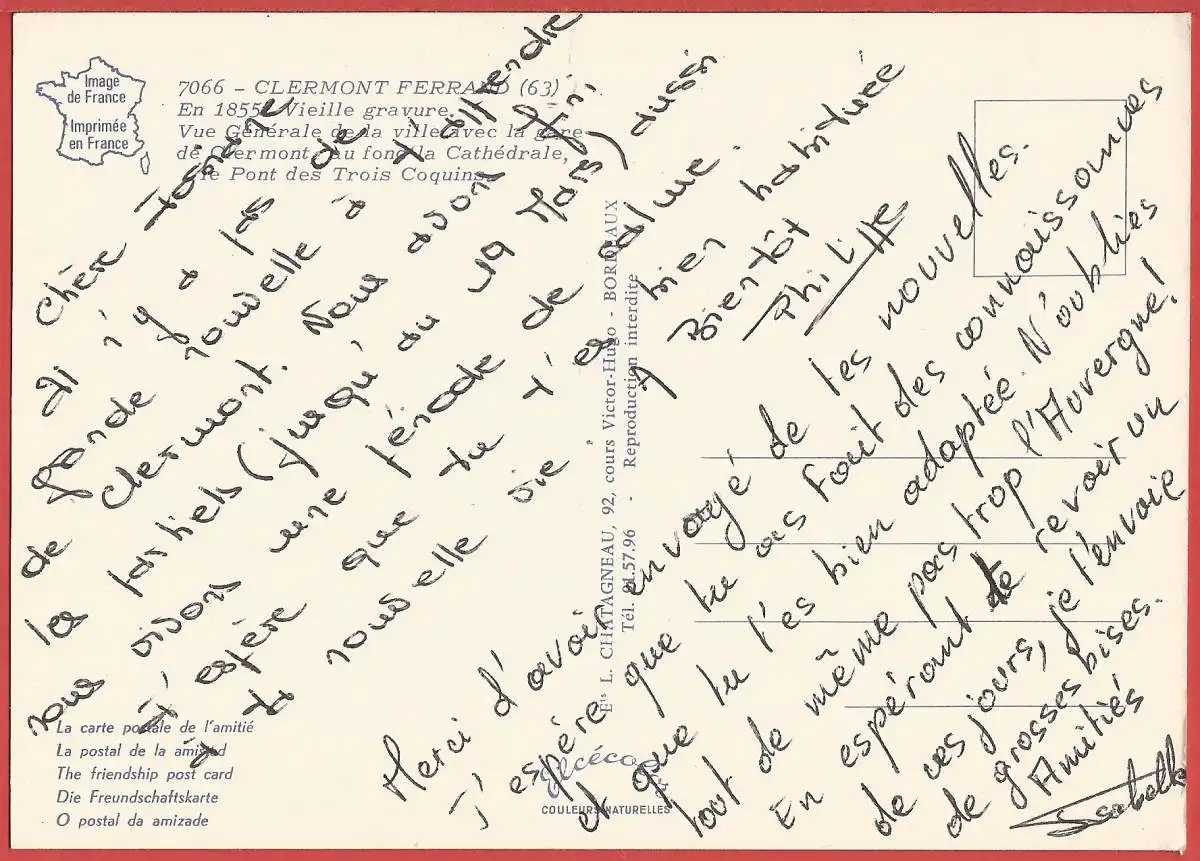 Image
de France
Imprimée
en France
7066 - CLERMONT FERRAND (63)
En 1855. Vieille gravure.
Vue Générale de la ville avec la gare
de Clermont, au fond la Cathédrale,
le Pont des Trois Coquins.
Chère Josiane
Il n'y a pas de
grande nouvelle à
de Clermont. Nous avons fini
les partiels (jusqu'au 19 Mars) aussi
nous vivons une période de calme.
J'espère que tu t'es bien habituée
à ta nouvelle vie.
A Bientôt
Ets L. CHATAGNEAU, 92, cours Victor-Hugo - BORDEAUX
Tél. 91.57.96 - Reproduction interdite
Merci d'avoir envoyé de tes nouvelles.
J'espère que tu as fait des connaissances
et que tu t'es bien adaptée. N'oublies
tout de même pas trop l'Auvergne!
En espérant te revoir un
de ces jours, je t'envoie
de grosses bises.
Amitiés
Isabelle
La carte postale de l'amitié
La postal de la amistad
The friendship post card
Die Freundschaftskarte
O postal da amizade
COULEURS NATURELLES